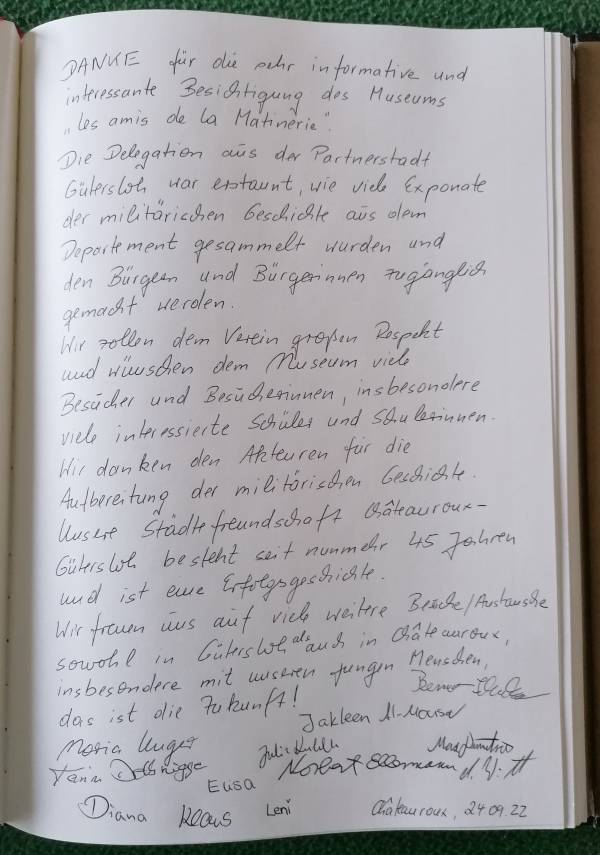 DANKE für die sehr informative und
interessante Besichtigung des Museums
„les amis de la Matinerie".
Die Delegation aus der Partnerstadt
Gütersloh war erstaunt, wie viele Exponate
der militärischen Geschichte aus dem
Departement gesammelt wurden und
den Bürgern und Bürgerinnen zugänglich
gemacht werden.
Wir zollen dem Verein großen Respekt
und wünschen dem Museum viele
Besucher und Besucherinnen, insbesondere
viele interessierte Schüler und Schülerinnen.
Wir danken den Akteuren für die
Aufbereitung der militärischen Geschichte.
Unsere Städtefreundschaft Châteauroux-
Gütersloh besteht seit nunmehr 45 Jahren
und ist eine Erfolgsgeschichte.
Wir freuen uns auf viele weitere Besuche/Austausche
sowohl in Gütersloh als auch in Châteauroux,
insbesondere mit unseren jungen Menschen,
das ist die Zukunft!
Jakleen Al-Mousa
Maria Unger
Julia
Elisa
Norbert Ellermann
Diana Klaus Leni
Châteauroux, 24.09.22